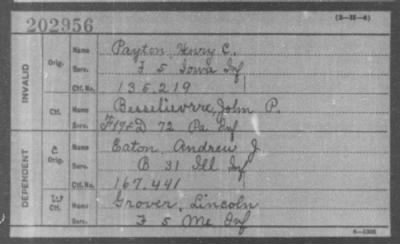 202956
(3-35-4)
INVALID
Orig.
Name Payton, Henry C.
Serv. F 5 Iowa Inf
Ctf. No. 135,219
Ctf.
Name Besselievre, John P.
Serv. F 17 & D 72 Pa Inf
DEPENDENT
C
Orig.
Name Eaton, Andrew J.
Serv. B 31 Ill Inf
Ctf. No. 167,441
W
Ctf.
Name Grover, Lincoln
Serv. F 5 Me Inf